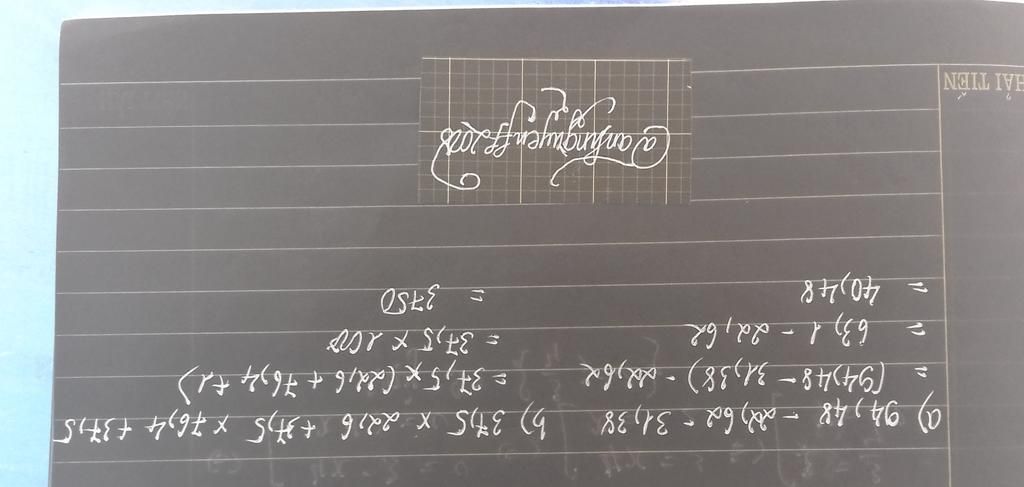 a) 94,48 - 22,62 - 31,38
= (94,48 - 31,38) - 22,62
= 63,1 - 22,62
= 40,48
b) 37,5 x 22,6 + 37,5 x 76,4 + 37,5
= 37,5 x (22,6 + 76,4 + 1)
= 37,5 x 100
= 3750
HẢI TIẾN